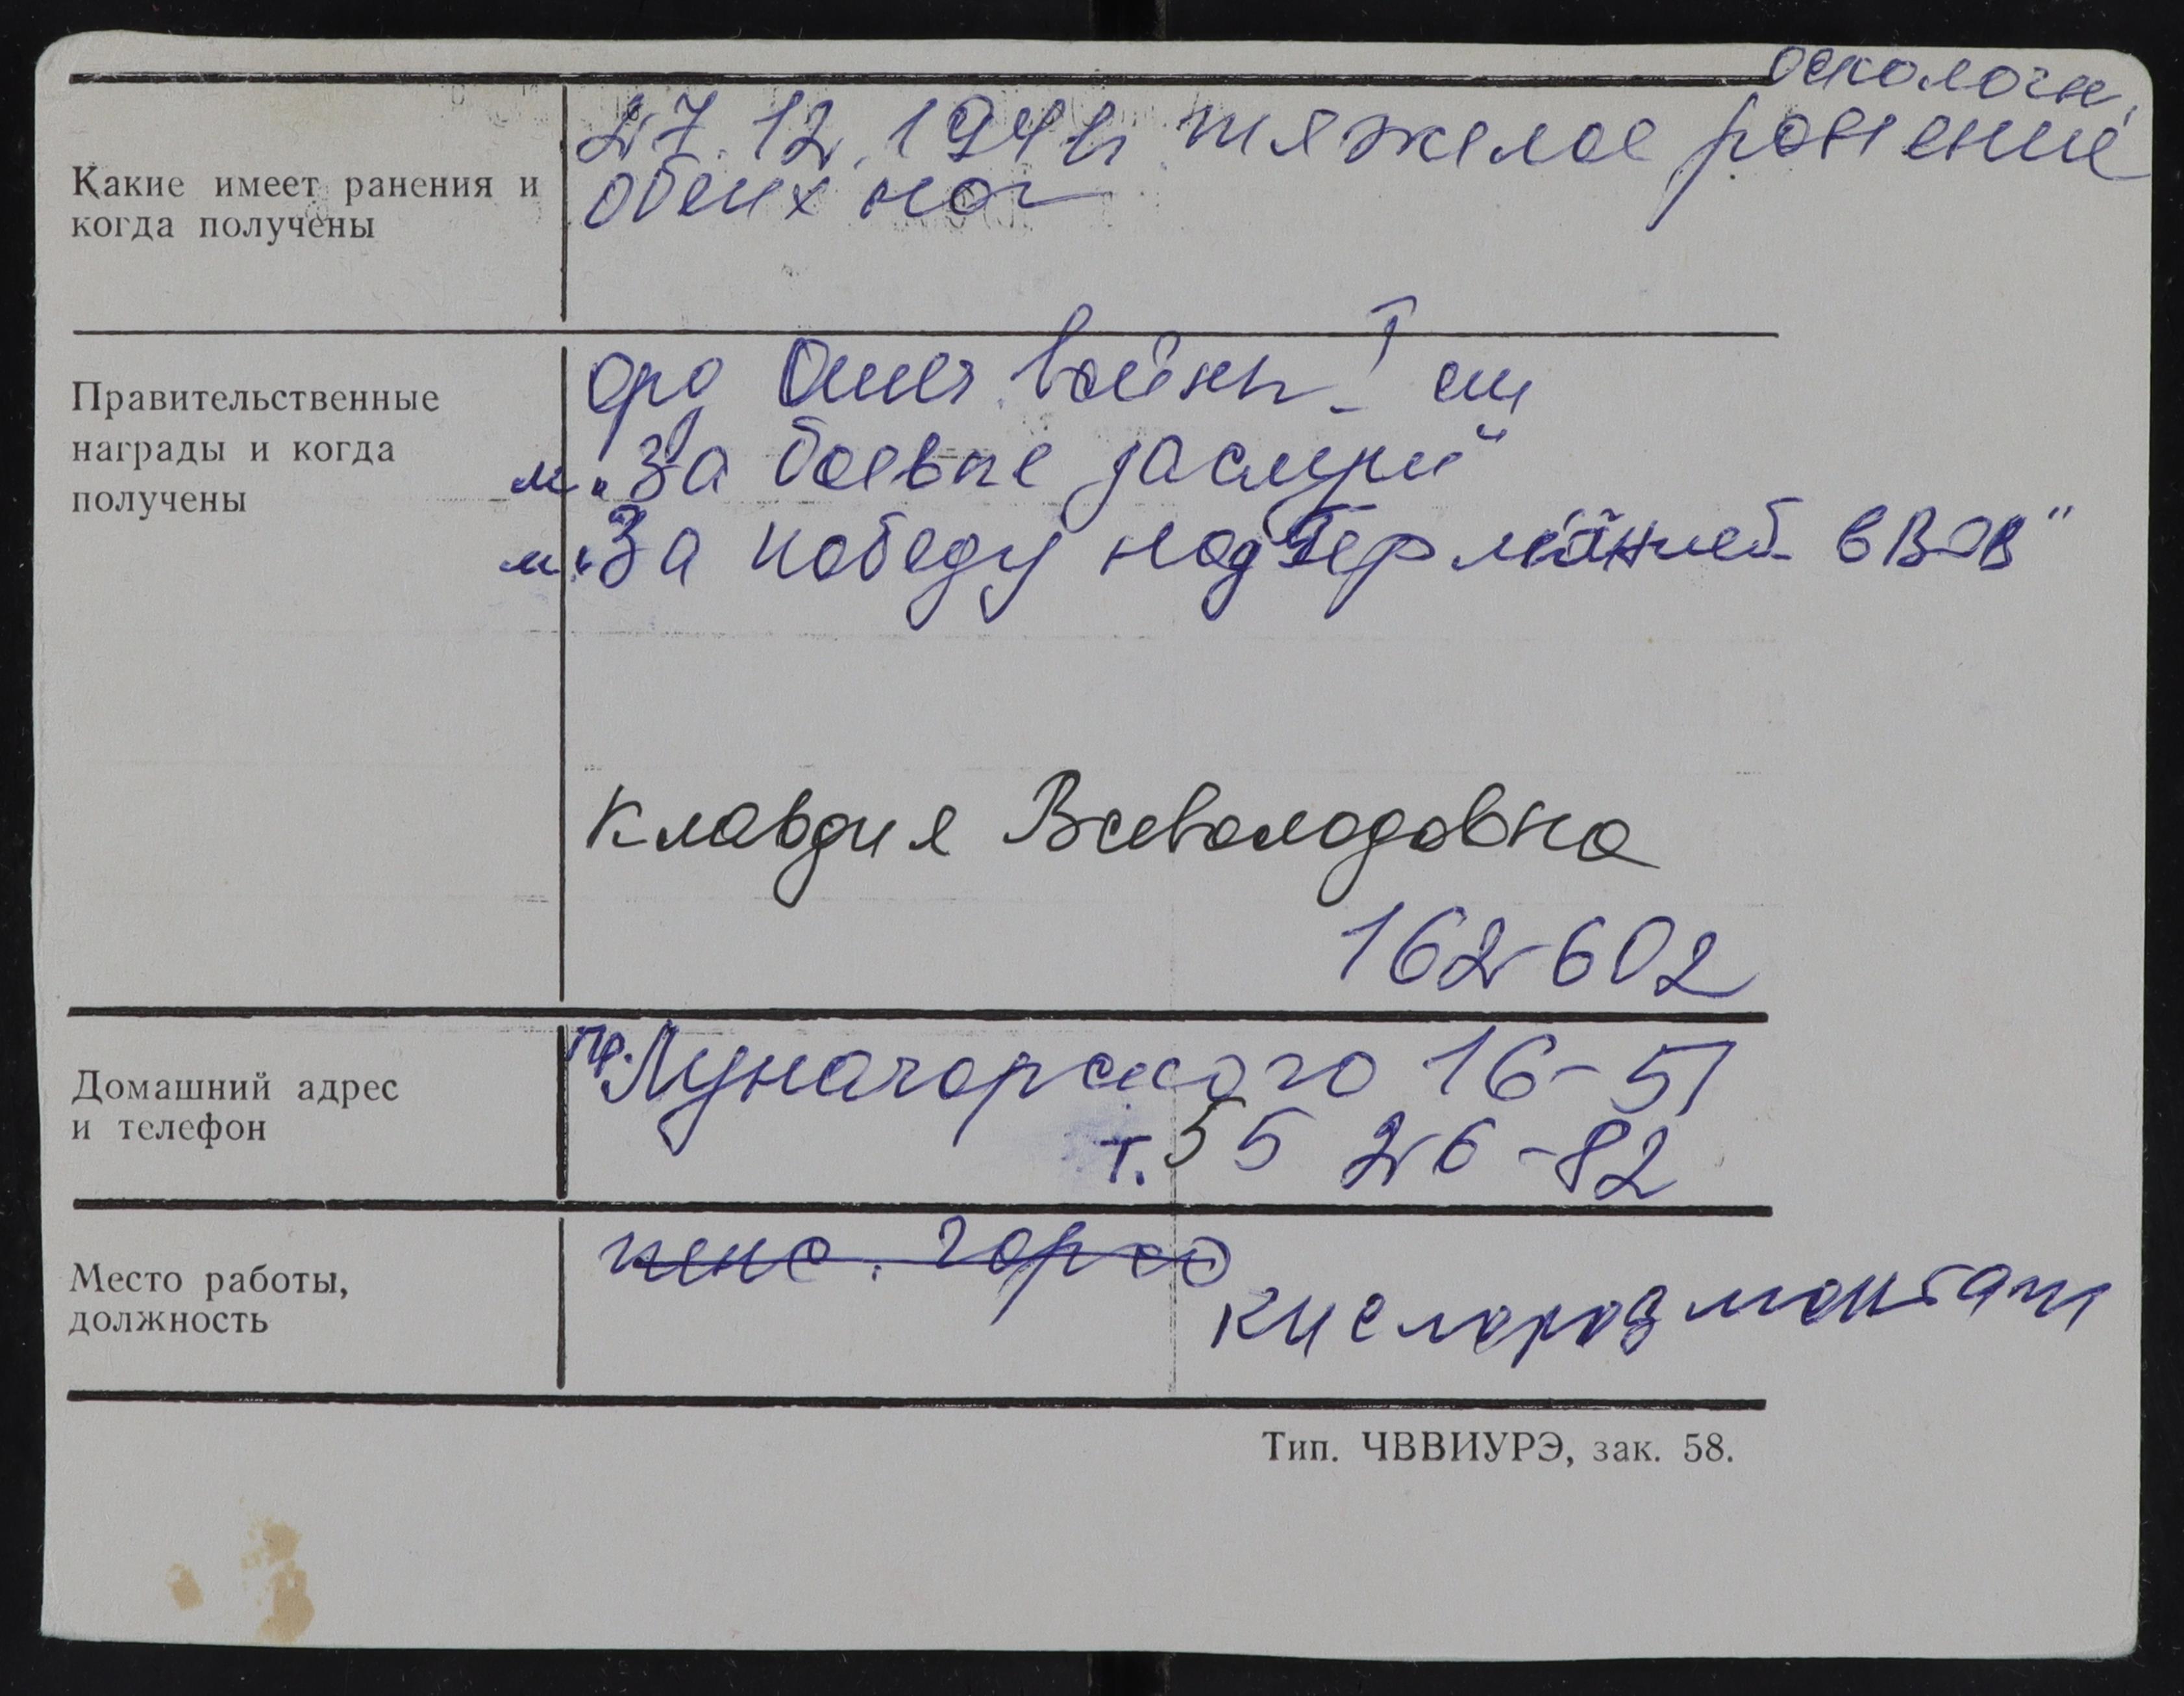 осколочн.
Какие имеет ранения и когда получены
27.12.1941г. тяжелое ранение
обеих ног
Правительственные награды и когда получены
орд Отеч. войны I ст
м. „За боевые заслуги"
м. „За победу над Германией в ВОВ"
Клавдия Всеволодовна
162602
Домашний адрес и телефон
пр. Луначарского 16-51
т. 55 26-82
Место работы, должность
пенс. горсо
Кислородмонтаж
Тип. ЧВВИУРЭ, зак. 58.